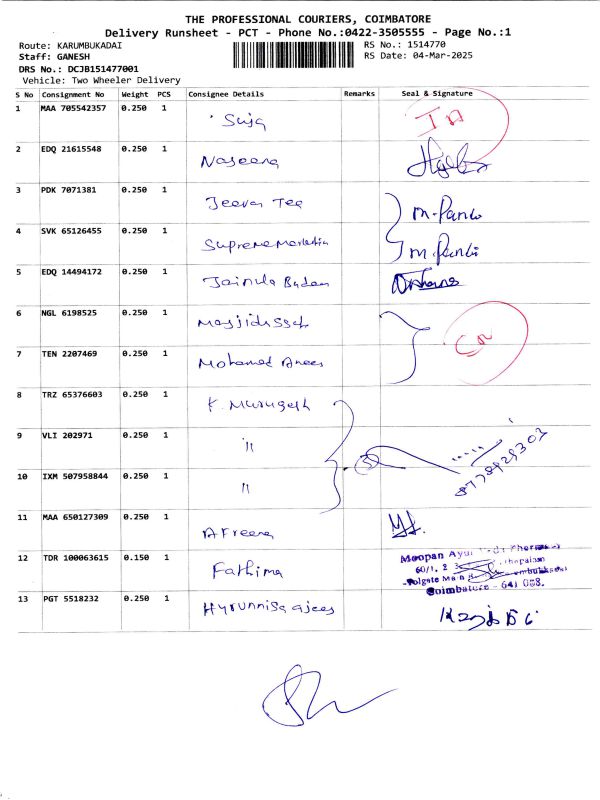 THE PROFESSIONAL COURIERS, COIMBATORE
Delivery Runsheet - PCT - Phone No.:0422-3505555 - Page No.:1
Route: KARUMBUKADAI RS No.: 1514770
Staff: GANESH RS Date: 04-Mar-2025
DRS No.: DCJB151477001
Vehicle: Two Wheeler Delivery
S No Consignment No Weight PCS Consignee Details Remarks Seal & Signature
1 MAA 705542357 0.250 1 Suja
2 EDQ 21615548 0.250 1 Naseena
3 PDK 7071381 0.250 1 Jeeva Tea
4 SVK 65126455 0.250 1 Supreme
5 EDQ 14494172 0.250 1 Jainula
6 NGL 6198525 0.250 1
7 TEN 2207469 0.250 1 Mohamed Anees
8 TRZ 65376603 0.250 1 K. Murugesh
9 VLI 202971 0.250 1 "
10 IXM 507958844 0.250 1 "
11 MAA 650127309 0.250 1 Afreena
12 TDR 100063615 0.150 1 Fathima Moopan
60/1, 2
Main
Coimbatore - 641 008.
13 PGT 5518232 0.250 1 Hyrunnisa ajees